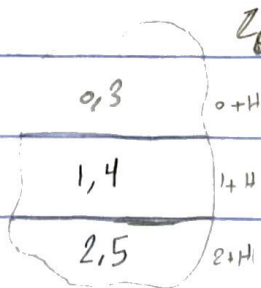 Z₆
0,3 0+H
1,4 1+H
2,5 2+H